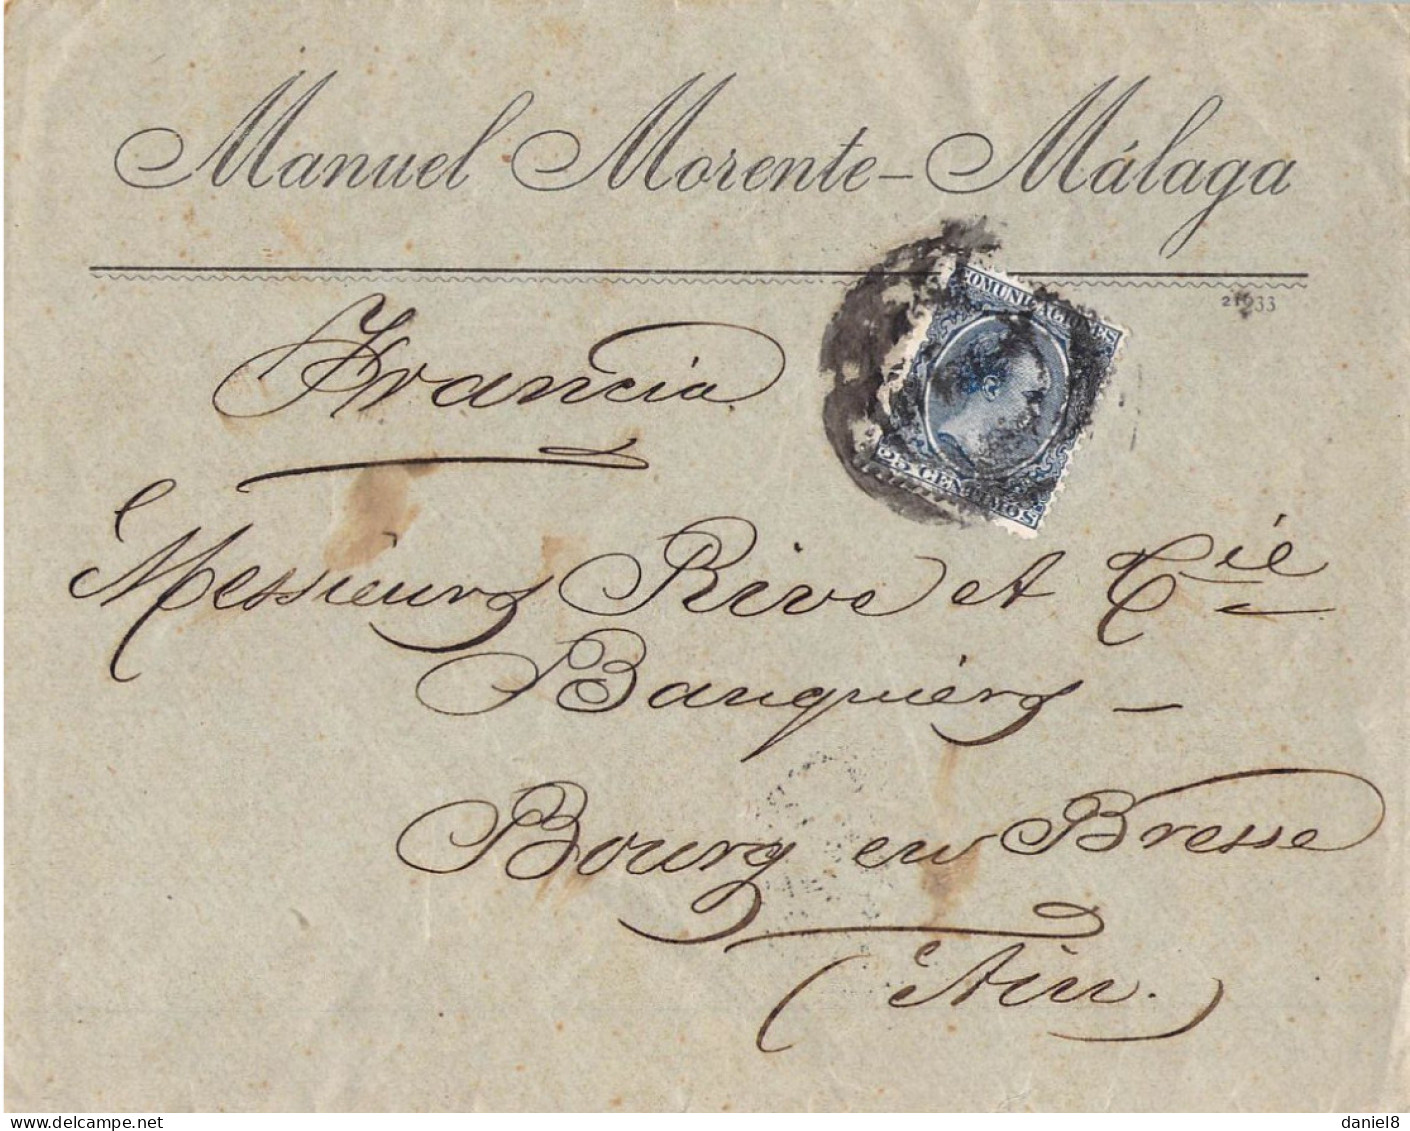 Manuel Morente - Málaga
COMUNICACIONES
25 CENTIMOS
Francia
Messieurs Rive et Cie
Banquiers -
Bourg en Bresse
(Ain.)
delcampe.net
daniel8